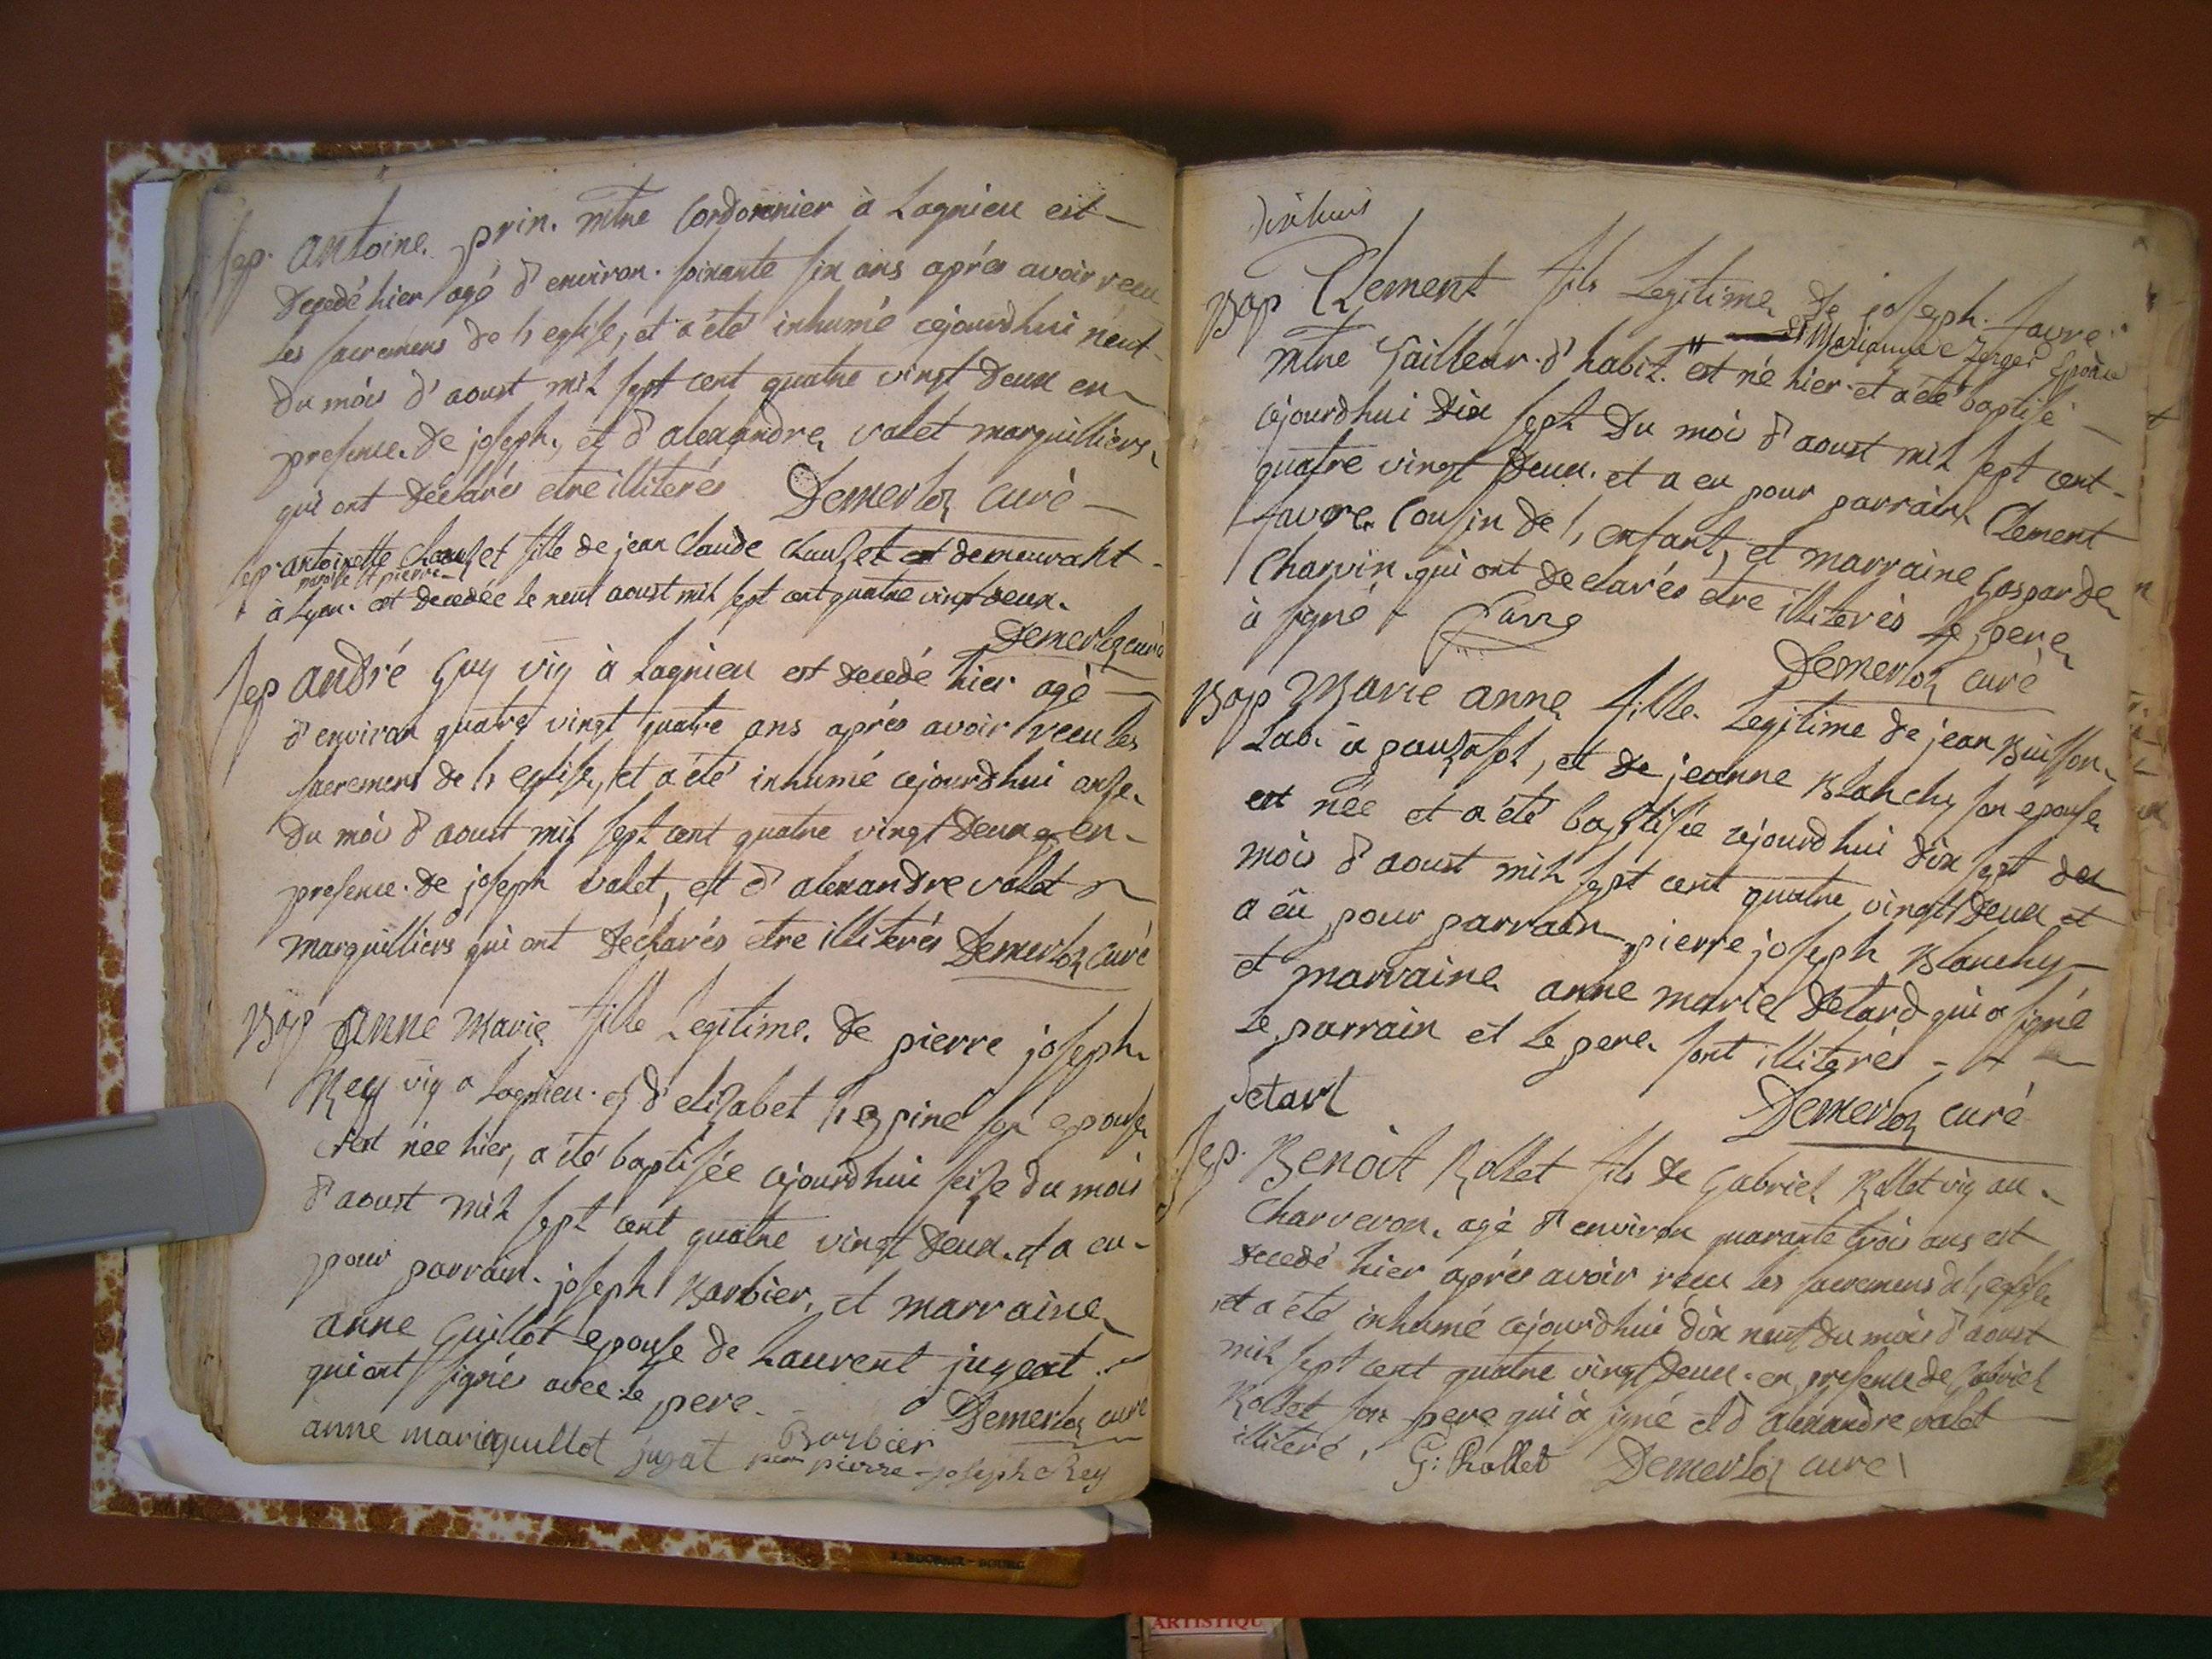 Sep. Antoine prin. mtre Cordonnier à Lagnieu est
Decedé hier agé d'environ soixante six ans aprés avoir recu
Les sacremens de l'eglise, et a été inhumé cejourdhui neuf
du mois d'aoust mil sept cent quatre vingt Deux en
presence de joseph, et d'alexandre valet marguilliers
qui ont déclarés etre illiterés Demerloz curé
Sep. antoinette Chauset fille de jean Claude Chauset demeurant
paroisse st pierre
à Lyon est decedée le neuf aoust mil sept cent quatre vingt deux.
Demerloz curé
Sep André Guy vig à Lagnieu est decedé hier agé
d'environ quatre vingt quatre ans aprés avoir recu les
sacremens de l'eglise, et a été inhumé cejourdhui onse
du mois d'aoust mil sept cent quatre vingt Deux en
presence de joseph valet, et d'alexandre valet
marguilliers qui ont Déclarés etre illiterés Demerloz curé
Bap Anne Marie fille Legitime de pierre joseph
Rey vig a Lagnieu et d'elisabet l'espine son epouse
est née hier, a été baptisée cejourdhui seise du mois
d'aoust mil sept cent quatre vingt Deux et a eu
pour parrain joseph Barbier, et marraine
anne Guillot epouse de Laurent jugeat
qui ont signés avec le pere Demerloz curé
anne marie guillot jugat Barbier
pierre joseph Rey
Dixhuit
Bap Clement fils Legitime de joseph favre
et Marianne Epouse
mtre Tailleur d'habit est né hier et a été baptisé
cejourdhui dix sept Du mois d'aoust mil sept cent
quatre vingt Deux et a eu pour parrain Clement
favre Cousin de l'enfant, et marraine Gasparde
Charvin qui ont declarés etre illiterés Le pere
à signé Favre
Demerloz curé
Bap Marie anne fille Legitime de jean Buisson
Lab. à , et de jeanne Blanchy son epouse
est née et a été baptisée cejourdhui dix sept du
mois d'aoust mil sept cent quatre vingt Deux et
a eü pour parrain pierre joseph Blanchy
et marraine anne marie Detard qui a signé
Le parrain et Le pere sont illiterés
Detart
Demerloz curé
Sep. Benoit Rollet fils de Gabriel Rollet vig au
Charveron agé d'environ quarante trois ans est
decedé hier aprés avoir recu les sacremens de l'eglise
et a été inhumé cejourdhui dix neuf du mois d'aoust
mil sept cent quatre vingt Deux en presence de Gabriel
Rollet son pere qui à signé et d'alexandre valet
illiteré. G: Rollet Demerloz curé
ARTISTIQU